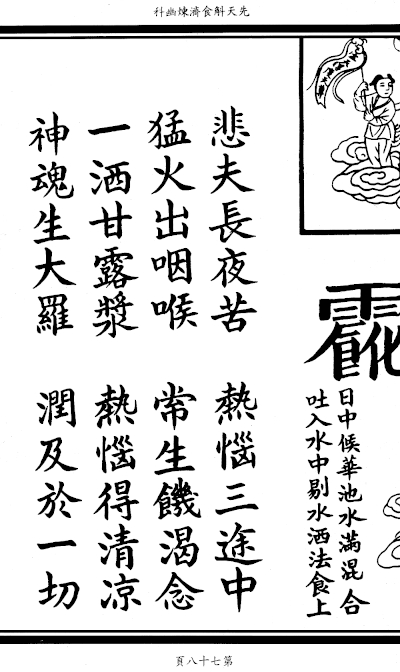 先天斛食濟煉幽科
日中候華池水滿混合
吐入水中剔水洒法食上
悲夫長夜苦 熱惱三途中
猛火出咽喉 常生饑渴念
一洒甘露漿 熱惱得清凉
神魂生大羅 潤及於一切
第七十八頁